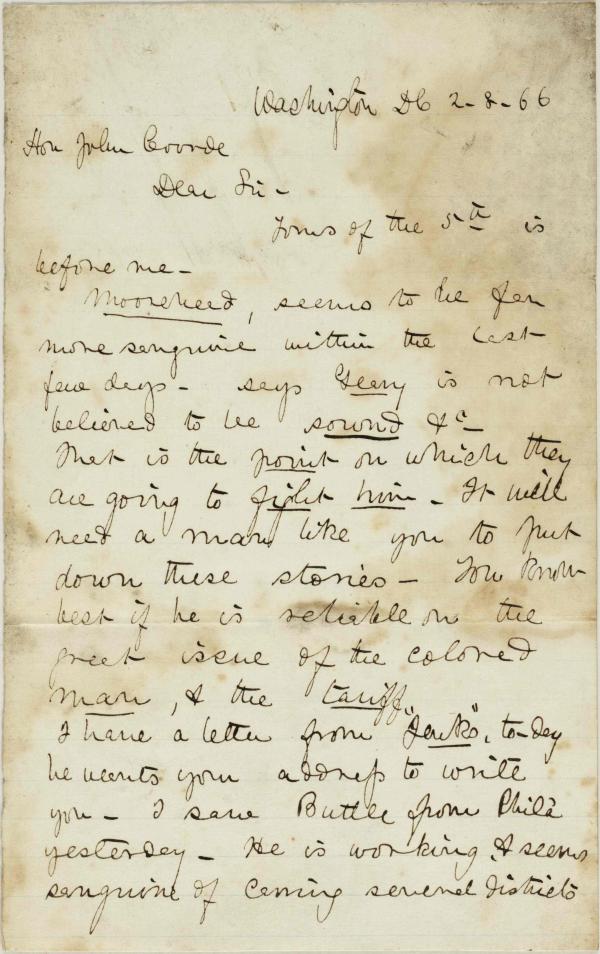 Washington DC 2-8-66
Hon John Covode
Dear Sir -
Yours of the 5th is
before me -
Mooreheed, seems to be far
more sanguine within the last
few days - says Geary is not
believed to be sound &c -
That is the point on which they
are going to fight him - It will
need a man like you to put
down these stories - You know
best if he is reliable on the
great issue of the colored
man, & the tariff,
I have a letter from "Jenks", to-day
he wants your address to write
you - I saw Buttle from Phila
yesterday - He is working & seems
sanguine of carrying several districts